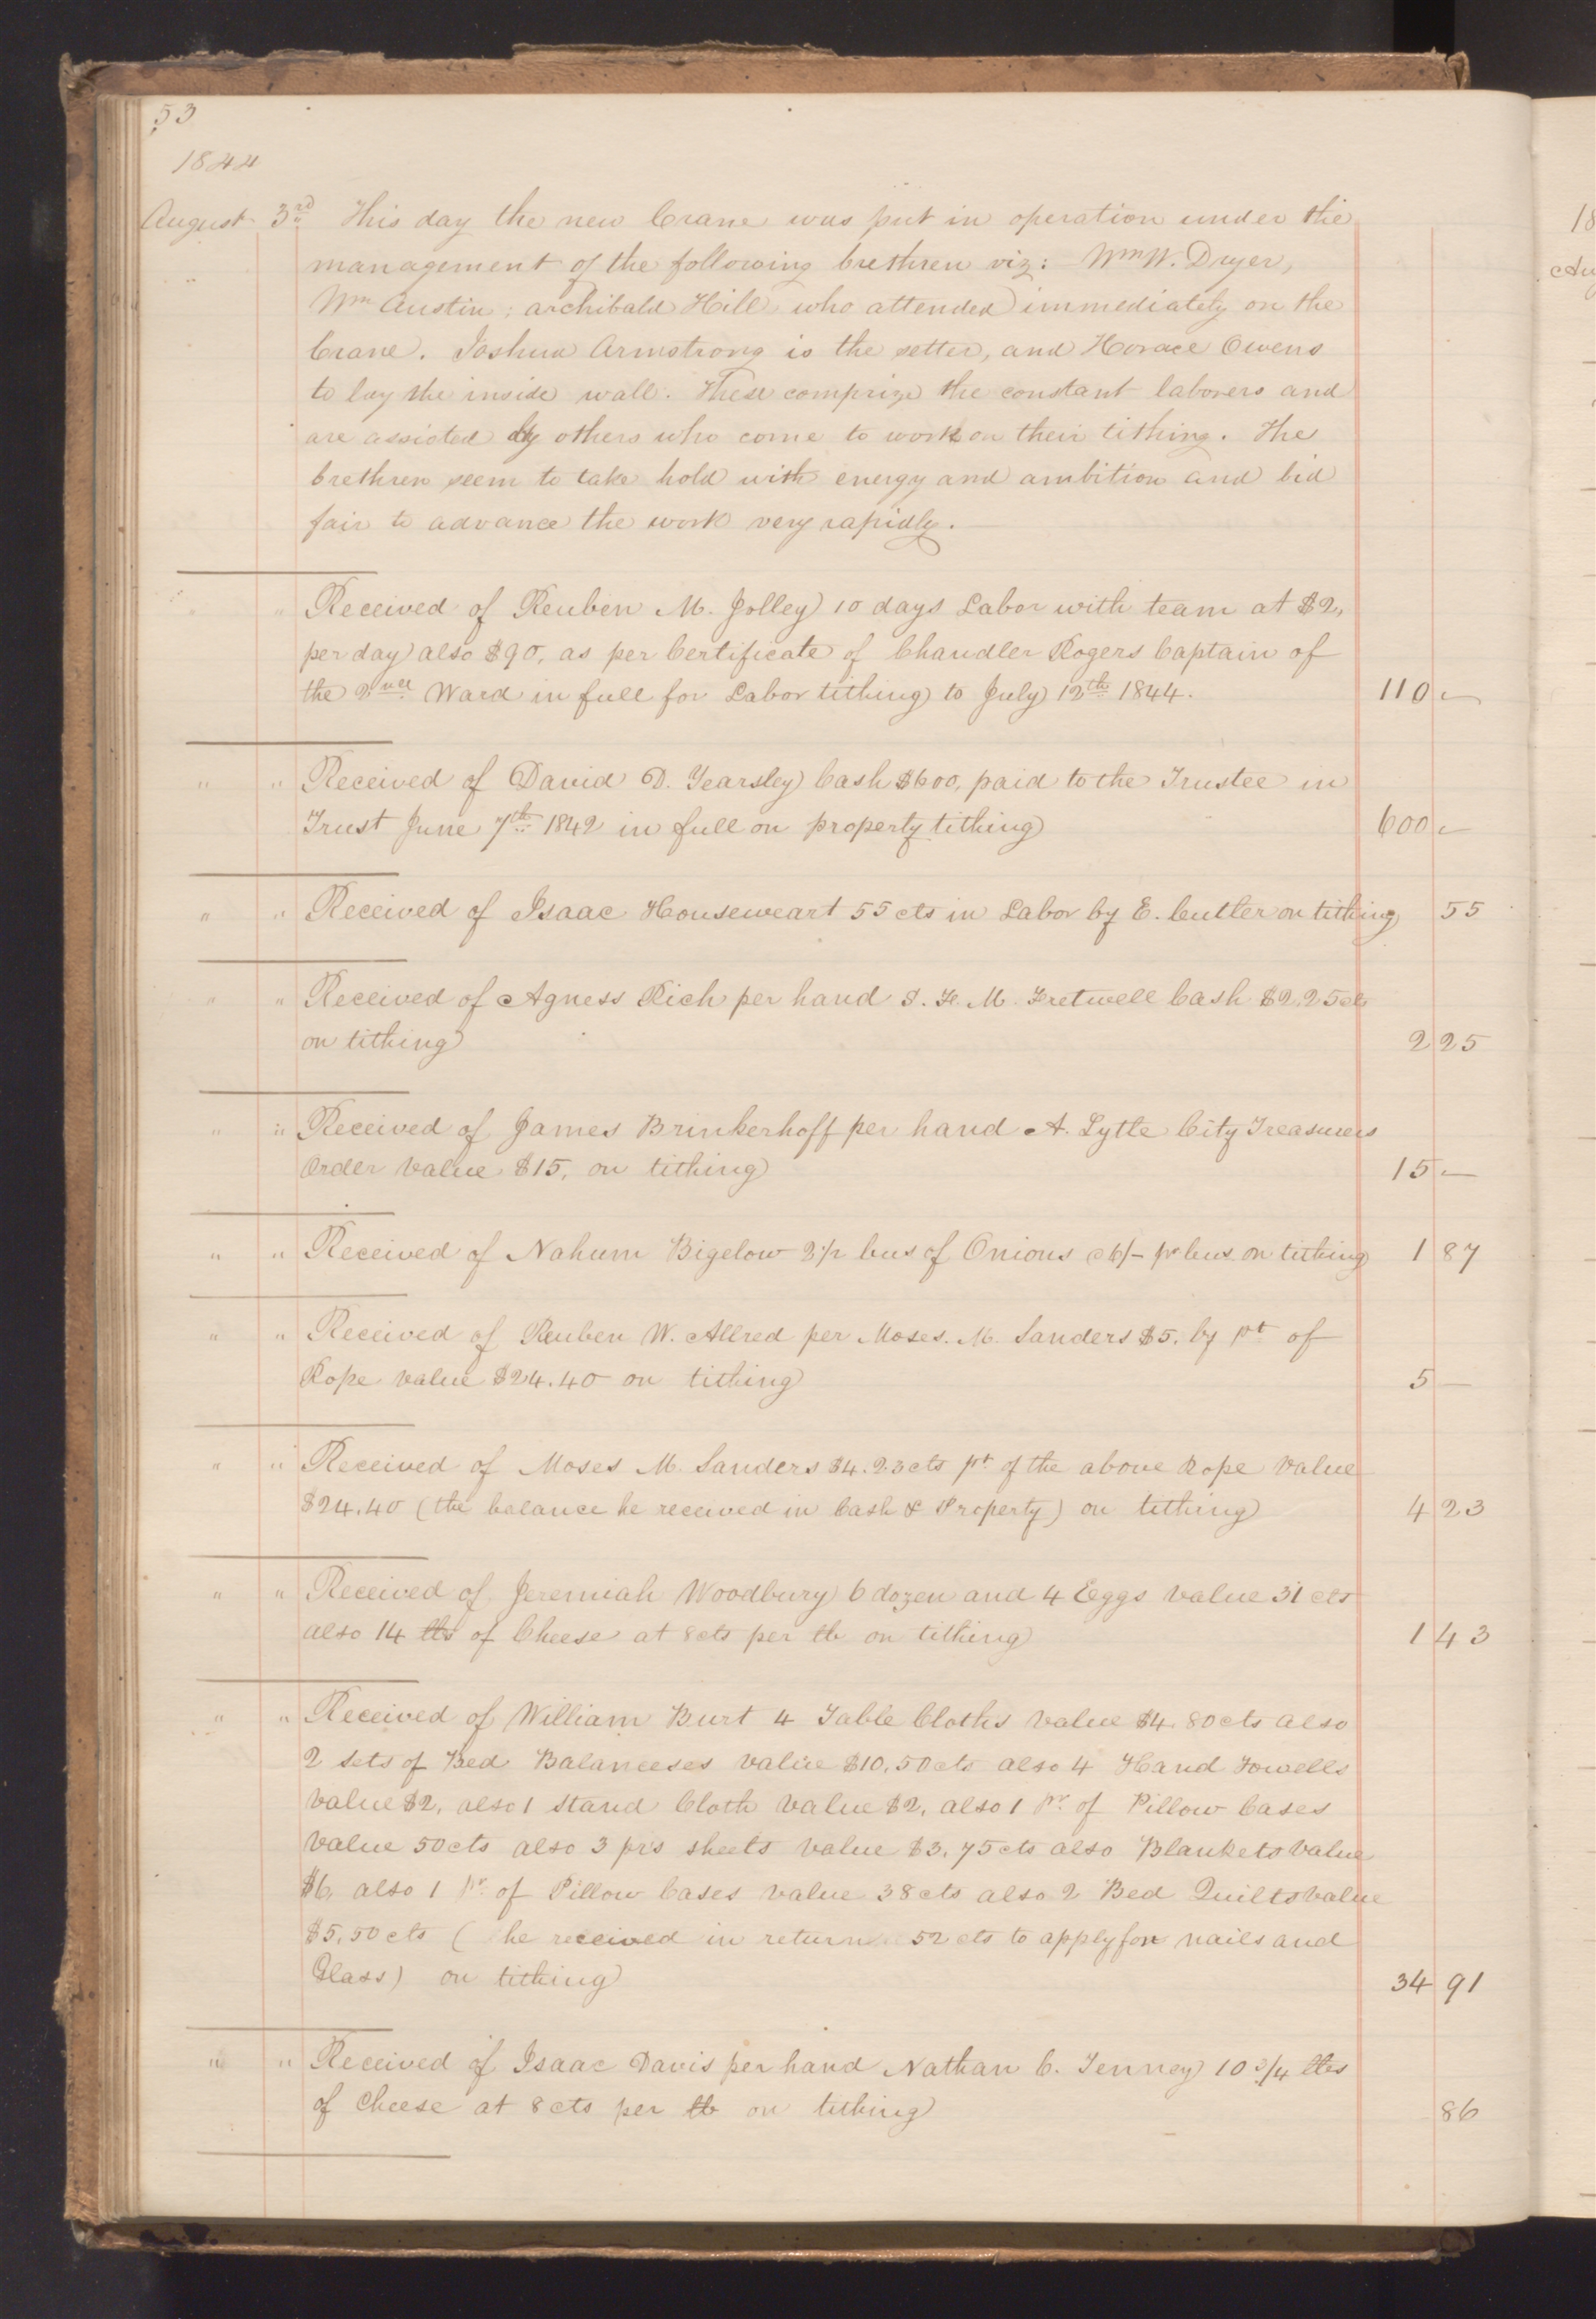 53
1844
August 3rd This day the new Crane was put in operation under the
management of the following brethren viz: Wm W. Dryer,
Wm Austin; archibald Hill who attended immediately on the
Crane. Joshua Armstrong is the setter, and Horace Owens
to lay the inside wall. These comprize the constant laborers and
are assisted by others who come to work on their tithing. The
brethren seem to take hold with energy and ambition and bid
fair to advance the work very rapidly.
" Received of Reuben M. Jolley 10 days Labor with team at $2,
per day also $90, as per Certificate of Chandler Rogers Captain of
the 2nd Ward in full for Labor tithing to July 12th 1844. 110 —
" " Received of David D. Yearsley Cash $600, paid to the Trustee in
Trust June 7th 1842 in full on property tithing 600 —
" " Received of Isaac Houseweart 55 cts in Labor by E. Cutler on tithing 55
" " Received of Agness Rich per hand S. F. M. Fretwell Cash $2.25cts
on tithing 2 25
" " Received of James Brinkerhoff per hand A. Lytle City Treasurers
Order value $15, on tithing 15 —
" " Received of Nahum Bigelow 2 1/2 bus of Onions @ 6/- pr bus. on tithing 1 87
" " Received of Reuben W. Allred per Moses. M. Sanders $5. by pt of
Rope value $24.40 on tithing 5 —
" " Received of Moses M. Sanders $4.23cts pt of the above Rope value
$24.40 (the balance he received in Cash & Property) on tithing 4 23
" " Received of Jeremiah Woodbury 6 dozen and 4 Eggs value 31 cts
also 14 lbs of Cheese at 8cts per lb on tithing 1 43
" " Received of William Burt 4 Table Cloths value $4.80cts also
2 sets of Bed Balanceses value $10,50cts also 4 Hand Towells
value $2, also 1 stand Cloth value $2, also 1 pr. of Pillow Cases
value 50cts also 3 prs sheets value $3.75cts also Blankets value
$6, also 1 pr. of Pillow Cases value 38cts also 2 Bed Quilts value
$5,50cts (he received in return 52 cts to apply for nails and
Glass) on tithing 34 91
" " Received of Isaac Davis per hand Nathan C. Tenney 10 3/4 lbs
of Cheese at 8cts per lb on tithing 86
18
Au